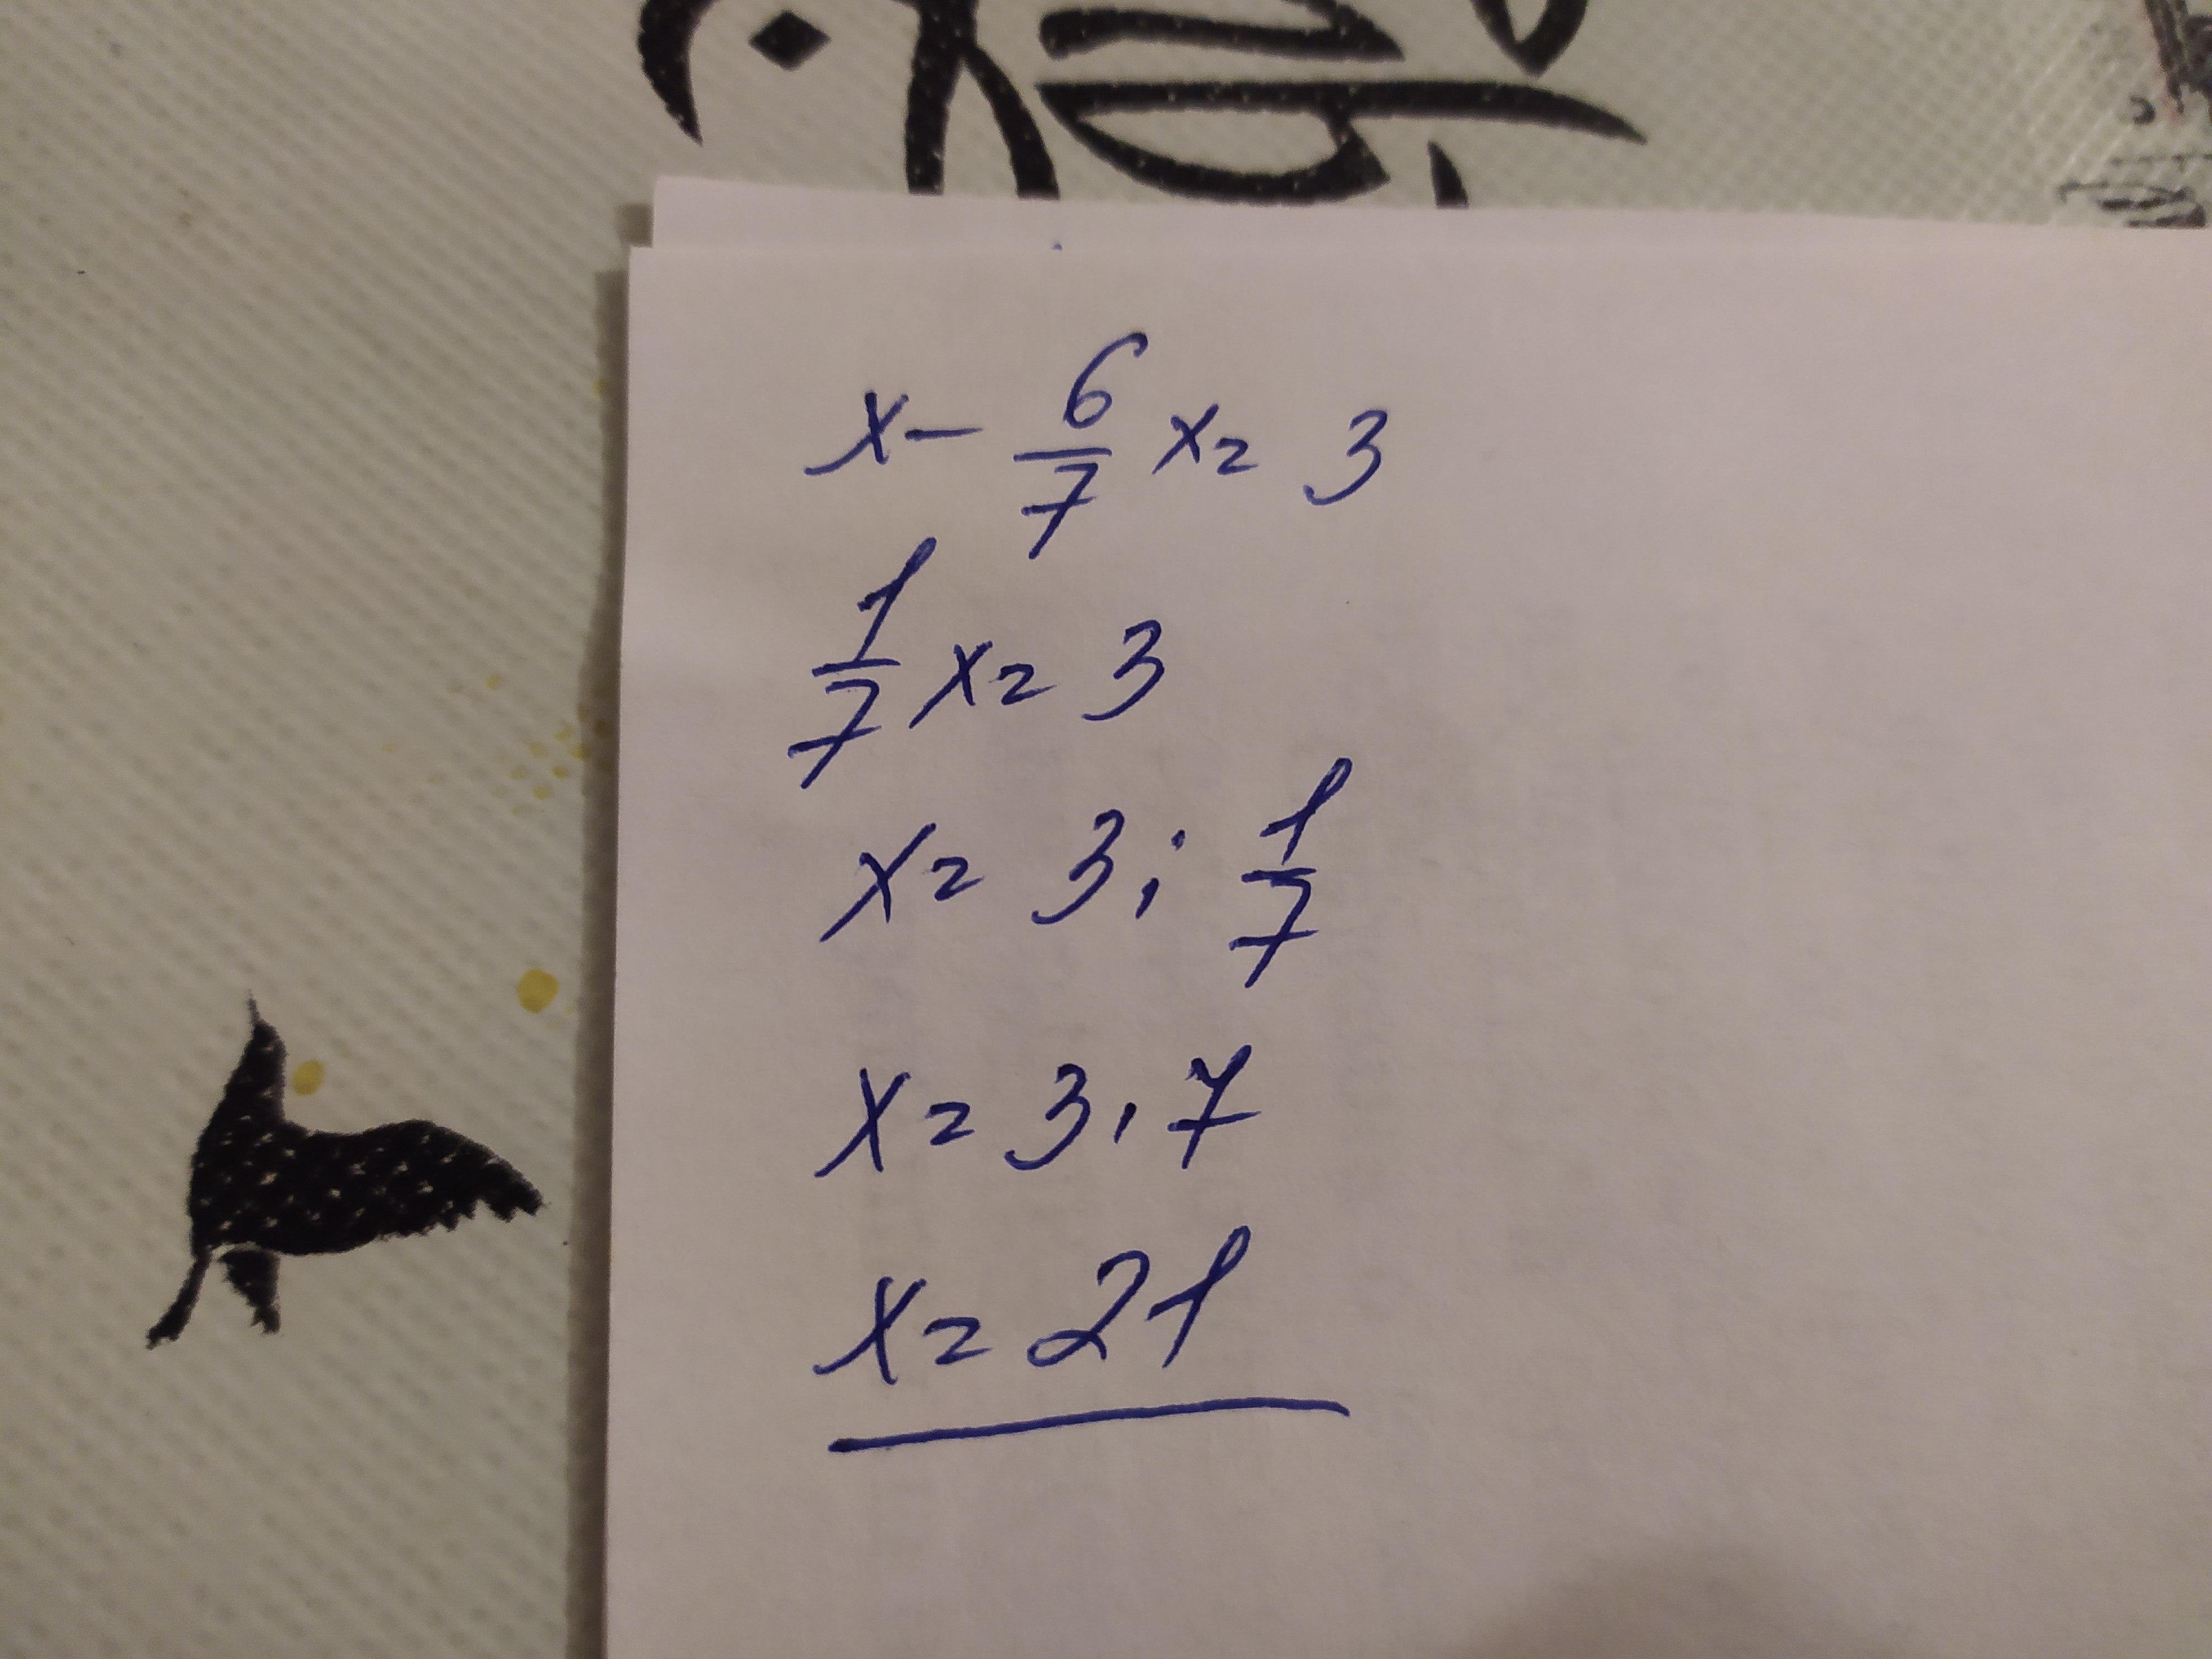 x - 6/7 x = 3
1/7 x = 3
x = 3 : 1/7
x = 3 · 7
x = 21